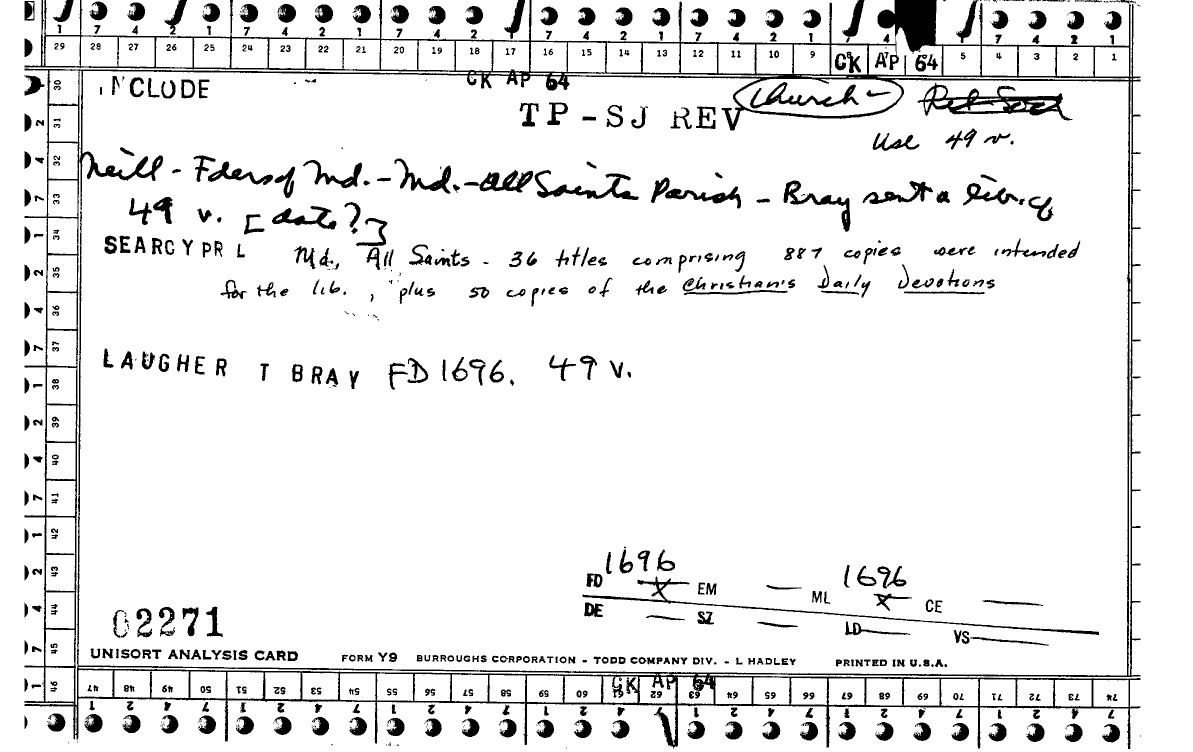 1 7 4 2 1 7 4 2 1 7 4 2 1 7 4 2 1 7 4 2 1 7 4 2 1
29 28 27 26 25 24 23 22 21 20 19 18 17 16 15 14 13 12 11 10 9 CK AP 64 5 4 3 2 1
CK AP 64
INCLUDE
Church - Ref-Soci
TP-SJ REV
Use 49 v.
Neill - Fders of Md. - Md. - All Saints Parish - Bray sent a lib. of
49 v. [date?]
SEARCY PR L Md., All Saints - 36 titles comprising 887 copies were intended
for the lib., plus 50 copies of the Christian's Daily Devotions
LAUGHER T BRAY FD 1696. 49 v.
1696 1696
FD X EM ML X CE
DE SZ LD VS
02271
UNISORT ANALYSIS CARD FORM Y9 BURROUGHS CORPORATION - TODD COMPANY DIV. - L HADLEY PRINTED IN U.S.A.
CK AP 64
47 48 49 50 51 52 53 54 55 56 57 58 59 60 61 62 63 64 65 66 67 68 69 70 71 72 73 74
30 31 32 33 34 35 36 37 38 39 40 41 42 43 44 45 46